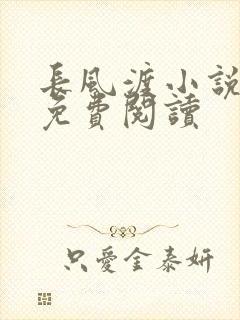 長風渡小說
免費閱讀
只愛金泰妍